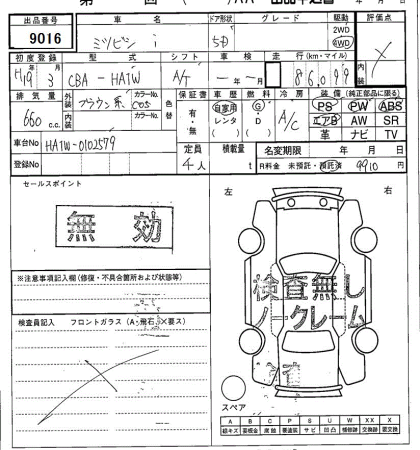 出品番号 車名 ドア形状 グレード 駆動 評価点
9016 ミツビシ i 5D 2WD 4WD ×
初度登録 型式 シフト 車検 走行(km・マイル) 内装
H19年3月 CBA-HA1W A/T 年 月 86,099
排気量 外装 カラーNo. 色替 保証書 車歴 燃料 冷房 装備(純正部品に限る)
660 c.c. ブラウン系 C05 有・無 自家用 レンタ G D A/C PS PW ABS
内装 カラーNo. エアB AW SR
革 ナビ TV
車台No HA1W-0102579 定員 積載量 名変期限 年 月 日
登録No 4人 t R料金 未預託・預託済 9910 円
セールスポイント 左 右
無効
検査無し
ノークレーム
※注意事項記入欄(修復・不具合箇所および状態等)
検査員記入 フロントガラス(A・飛石、X要ス)
スペア
A B C P S U W X XX
線キズ 要板金 腐蝕 要塗装 サビ 凹凸 補修跡 交換跡 要交換